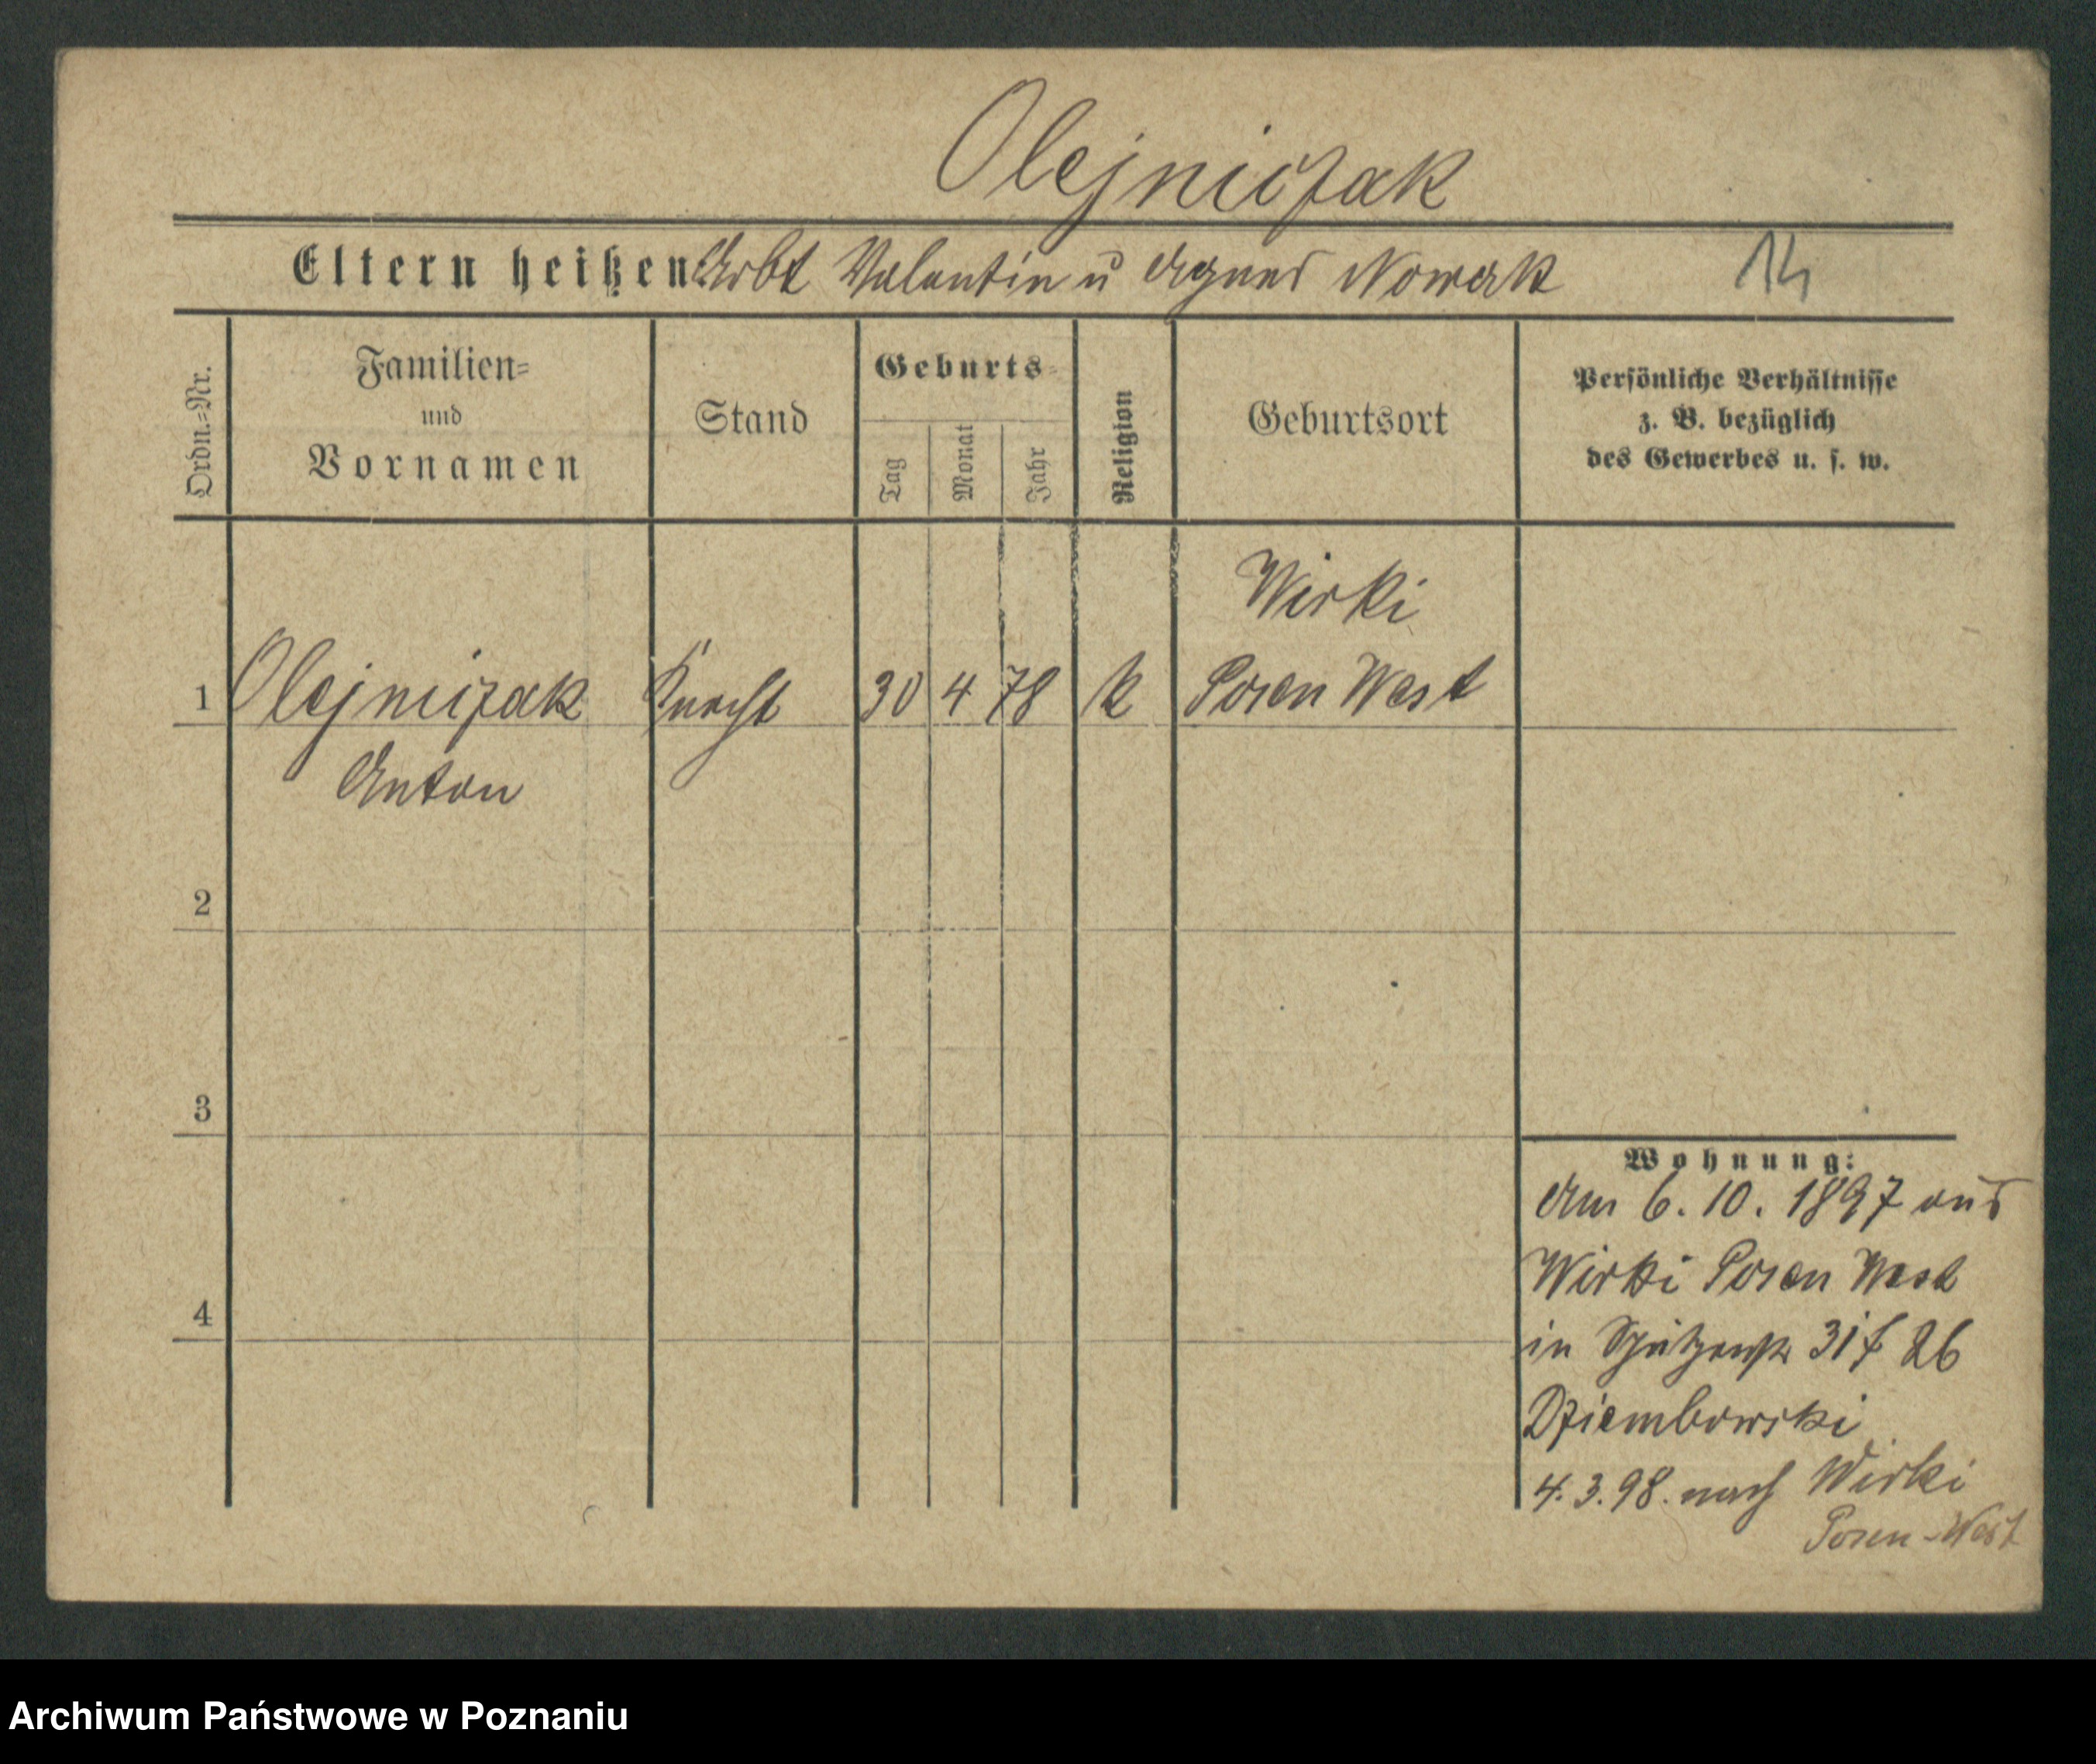 Olejniczak
Eltern heißen Arbt Valentin u Agnes Nowak 14
Ordn.-Nr.
Familien-
und
Vornamen
Stand
Geburts-
Tag
Monat
Jahr
Religion
Geburtsort
Persönliche Verhältnisse
z. B. bezüglich
des Gewerbes u. s. w.
Wirki
1 Olejniczak Knecht 30 4 78 k Posen West
Anton
2
3
4
Wohnung:
Am 6. 10. 1897 aus
Wirki Posen West
in 26
Dziembowski
4. 3. 98. nach Wirki
Posen-West
Archiwum Państwowe w Poznaniu